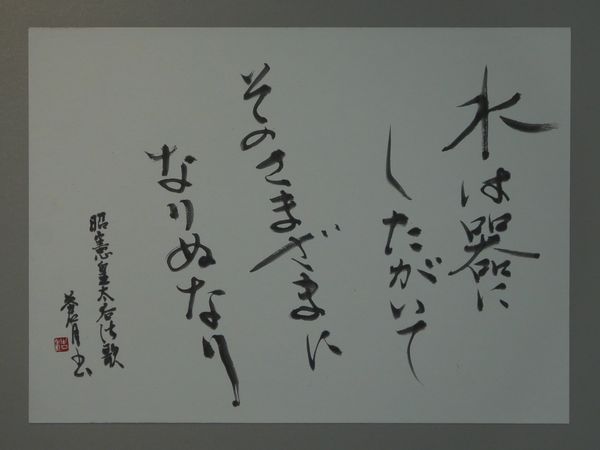 水は器に
したがいて
そのさまざまに
なりぬなり
昭憲皇太后御歌
蒼月書